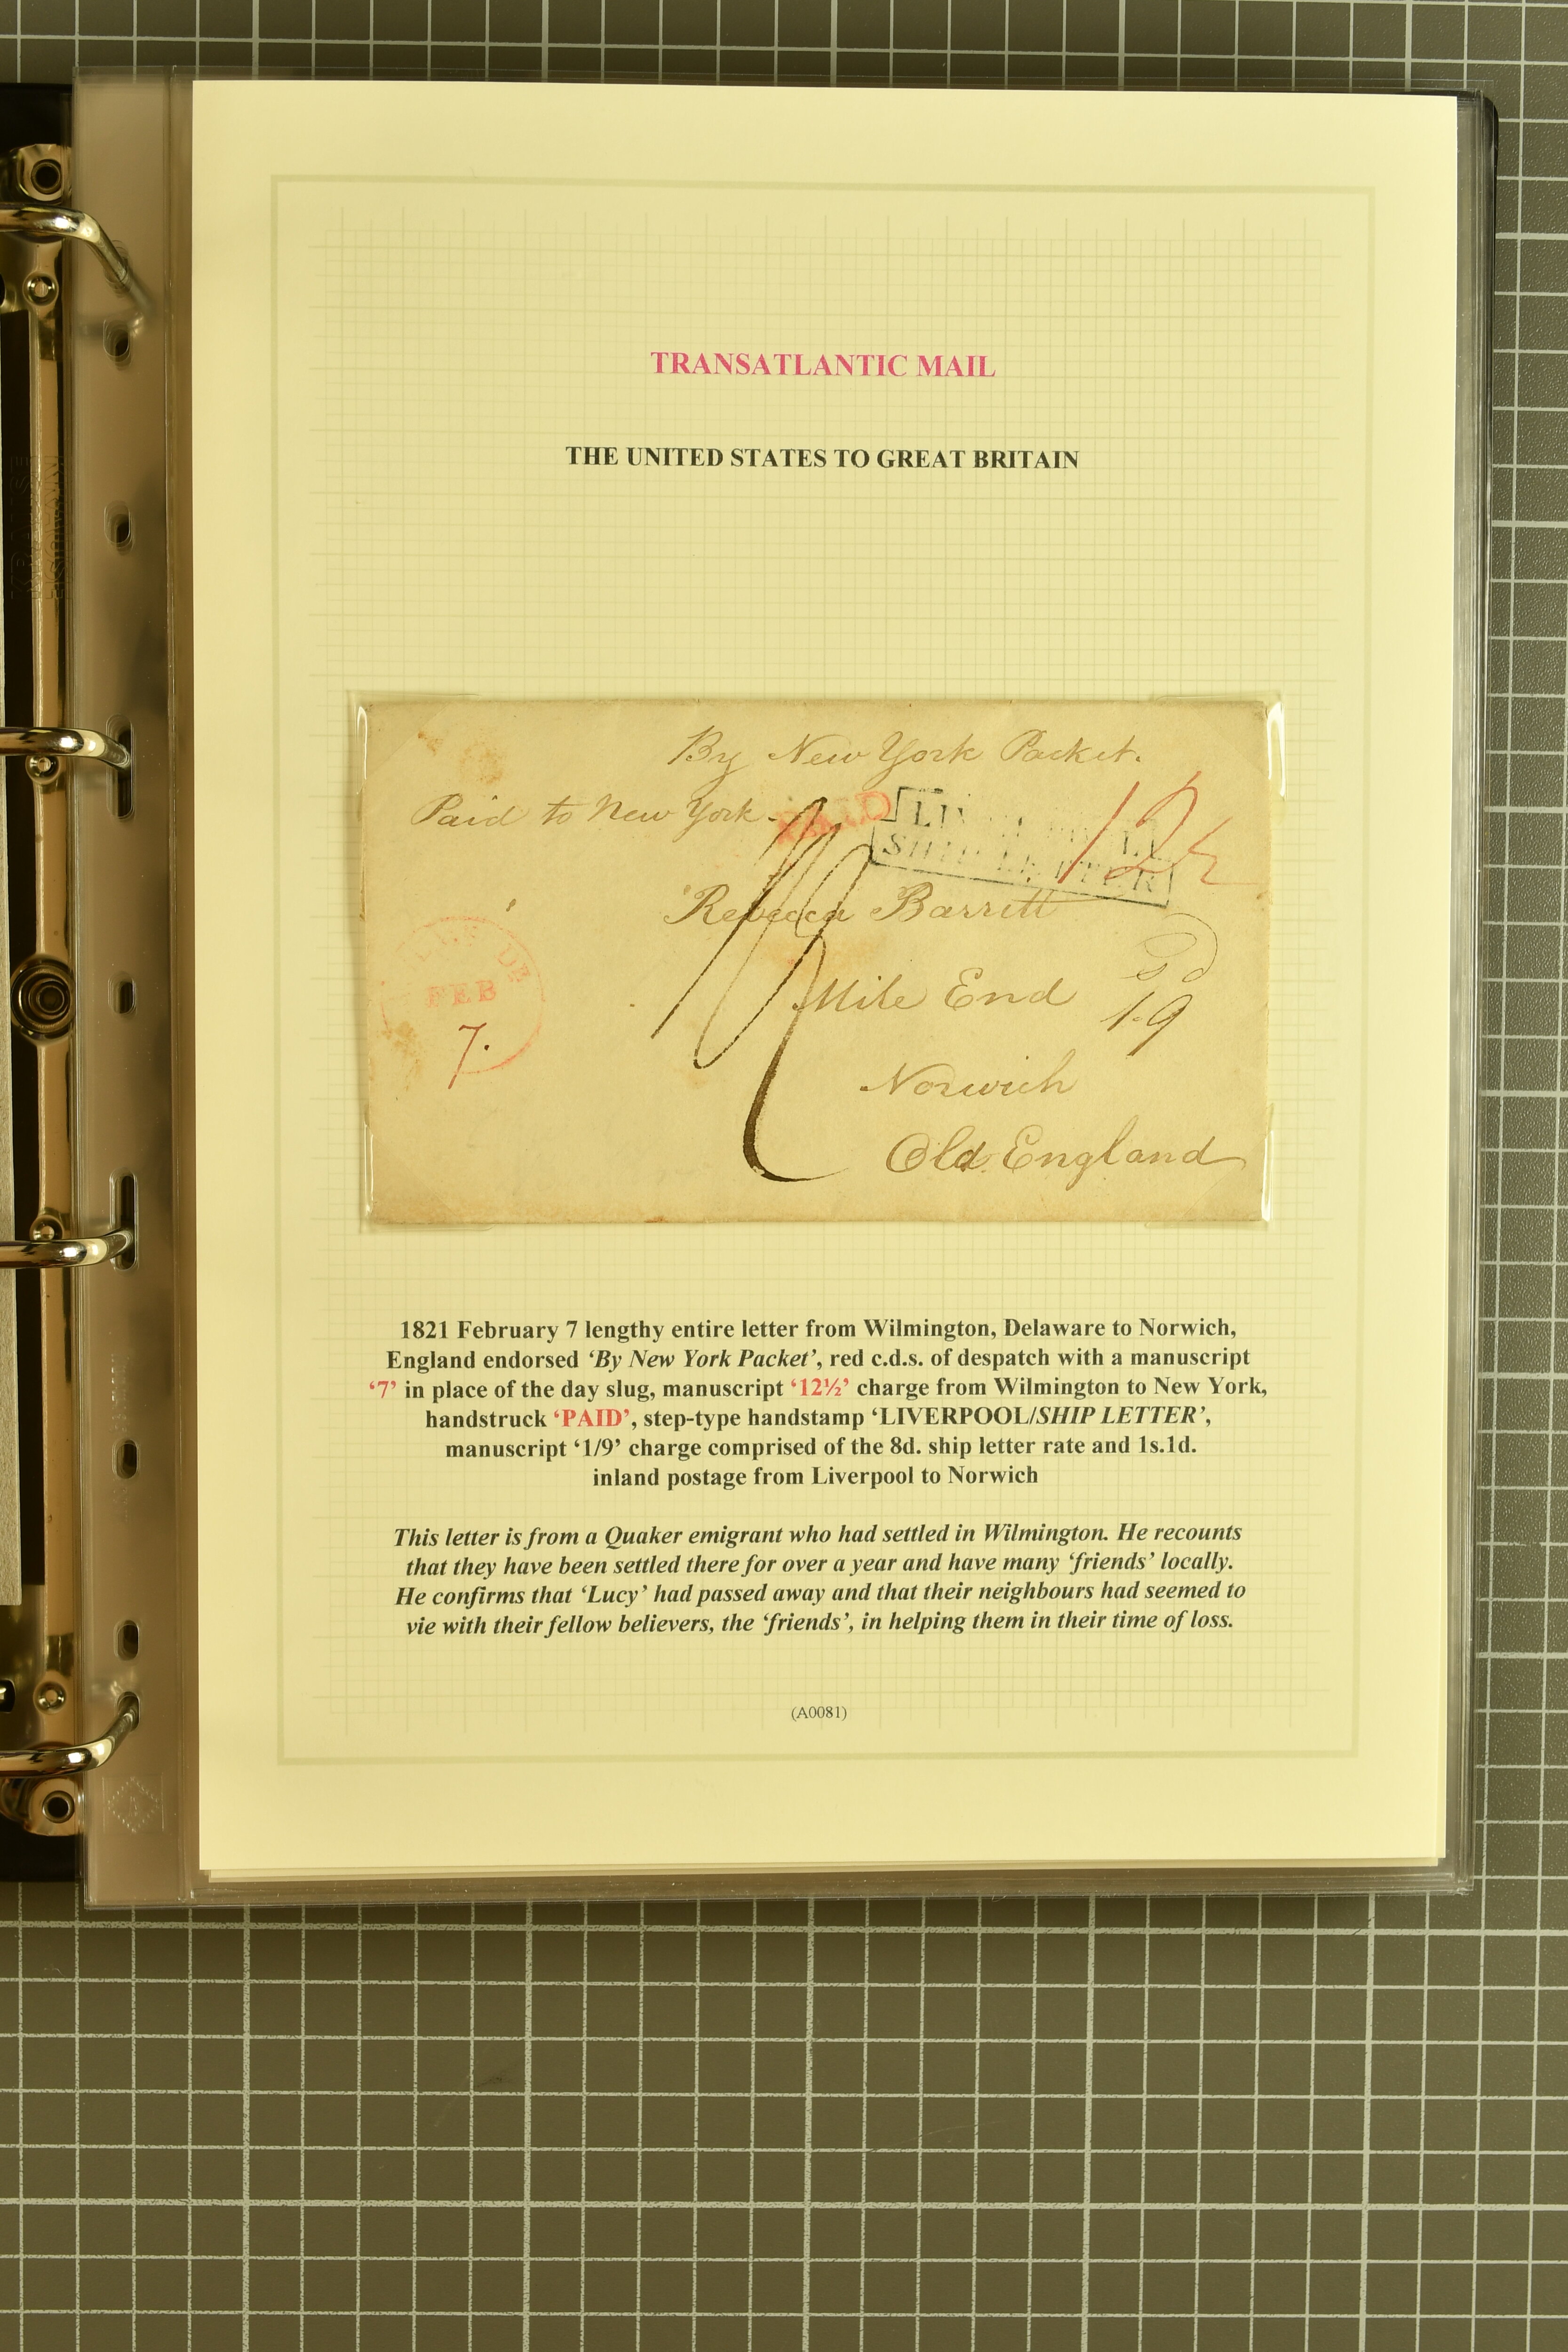 TRANSATLANTIC MAIL
THE UNITED STATES TO GREAT BRITAIN
By New York Packet.
Paid to New York
PAID
LIV
SHIP LETTER
12½
Rebecca Barrett
Mile End
s d
1.9
DE
FEB
7.
Norwich
Old England
1821 February 7 lengthy entire letter from Wilmington, Delaware to Norwich,
England endorsed ‘By New York Packet’, red c.d.s. of despatch with a manuscript
‘7’ in place of the day slug, manuscript ‘12½’ charge from Wilmington to New York,
handstruck ‘PAID’, step-type handstamp ‘LIVERPOOL/SHIP LETTER’,
manuscript ‘1/9’ charge comprised of the 8d. ship letter rate and 1s.1d.
inland postage from Liverpool to Norwich
This letter is from a Quaker emigrant who had settled in Wilmington. He recounts
that they have been settled there for over a year and have many ‘friends’ locally.
He confirms that ‘Lucy’ had passed away and that their neighbours had seemed to
vie with their fellow believers, the ‘friends’, in helping them in their time of loss.
(A0081)